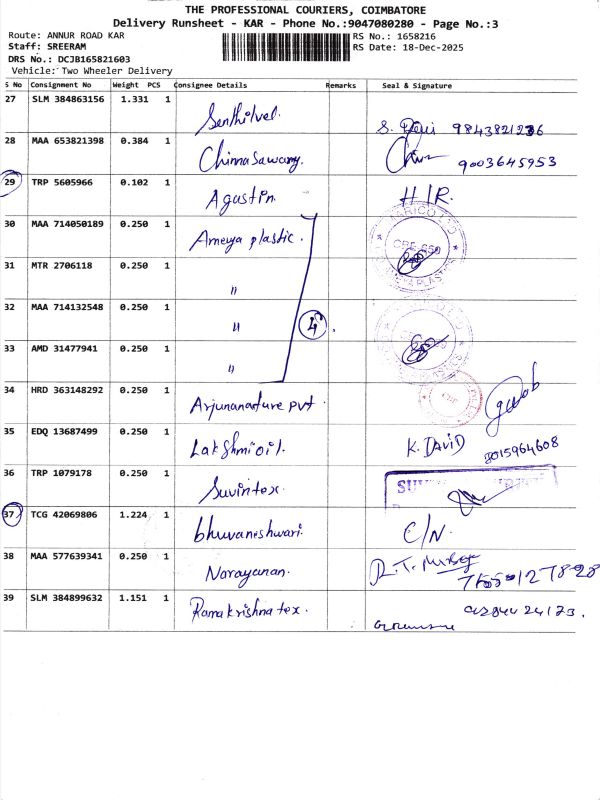 THE PROFESSIONAL COURIERS, COIMBATORE
Delivery Runsheet - KAR - Phone No.:9047080280 - Page No.:3
Route: ANNUR ROAD KAR
RS No.: 1658216
Staff: SREERAM
RS Date: 18-Dec-2025
DRS No.: DCJB165821603
Vehicle: Two Wheeler Delivery
S No Consignment No Weight PCS Consignee Details Remarks Seal & Signature
27 SLM 384863156 1.331 1 Senthilvel. S. 9843821236
28 MAA 653821398 0.384 1 Chinnasawamy. 9003645953
29 TRP 5605966 0.102 1 Agustin. H/R.
30 MAA 714050189 0.250 1 Ameya plastic.
31 MTR 2706118 0.250 1 "
32 MAA 714132548 0.250 1 " 4
33 AMD 31477941 0.250 1 "
34 HRD 363148292 0.250 1 Arjunanature pvt.
35 EDQ 13687499 0.250 1 Lakshmi oil. K. DAVID 8015964608
36 TRP 1079178 0.250 1 Suvintex.
37 TCG 42069806 1.224 1 bhuvaneshwari. C/N.
38 MAA 577639341 0.250 1 Narayanan.
39 SLM 384899632 1.151 1 Ramakrishna tex.